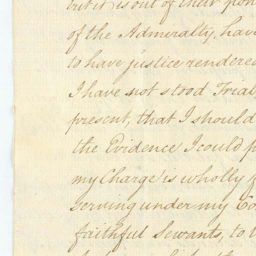 but it is out of their pow
of the Admiralty, hav
to have justice rendered
I have not stood Trial,
present, that I should
the Evidence I could p
my Charge is wholly
serving under my Co
faithful Servants, to